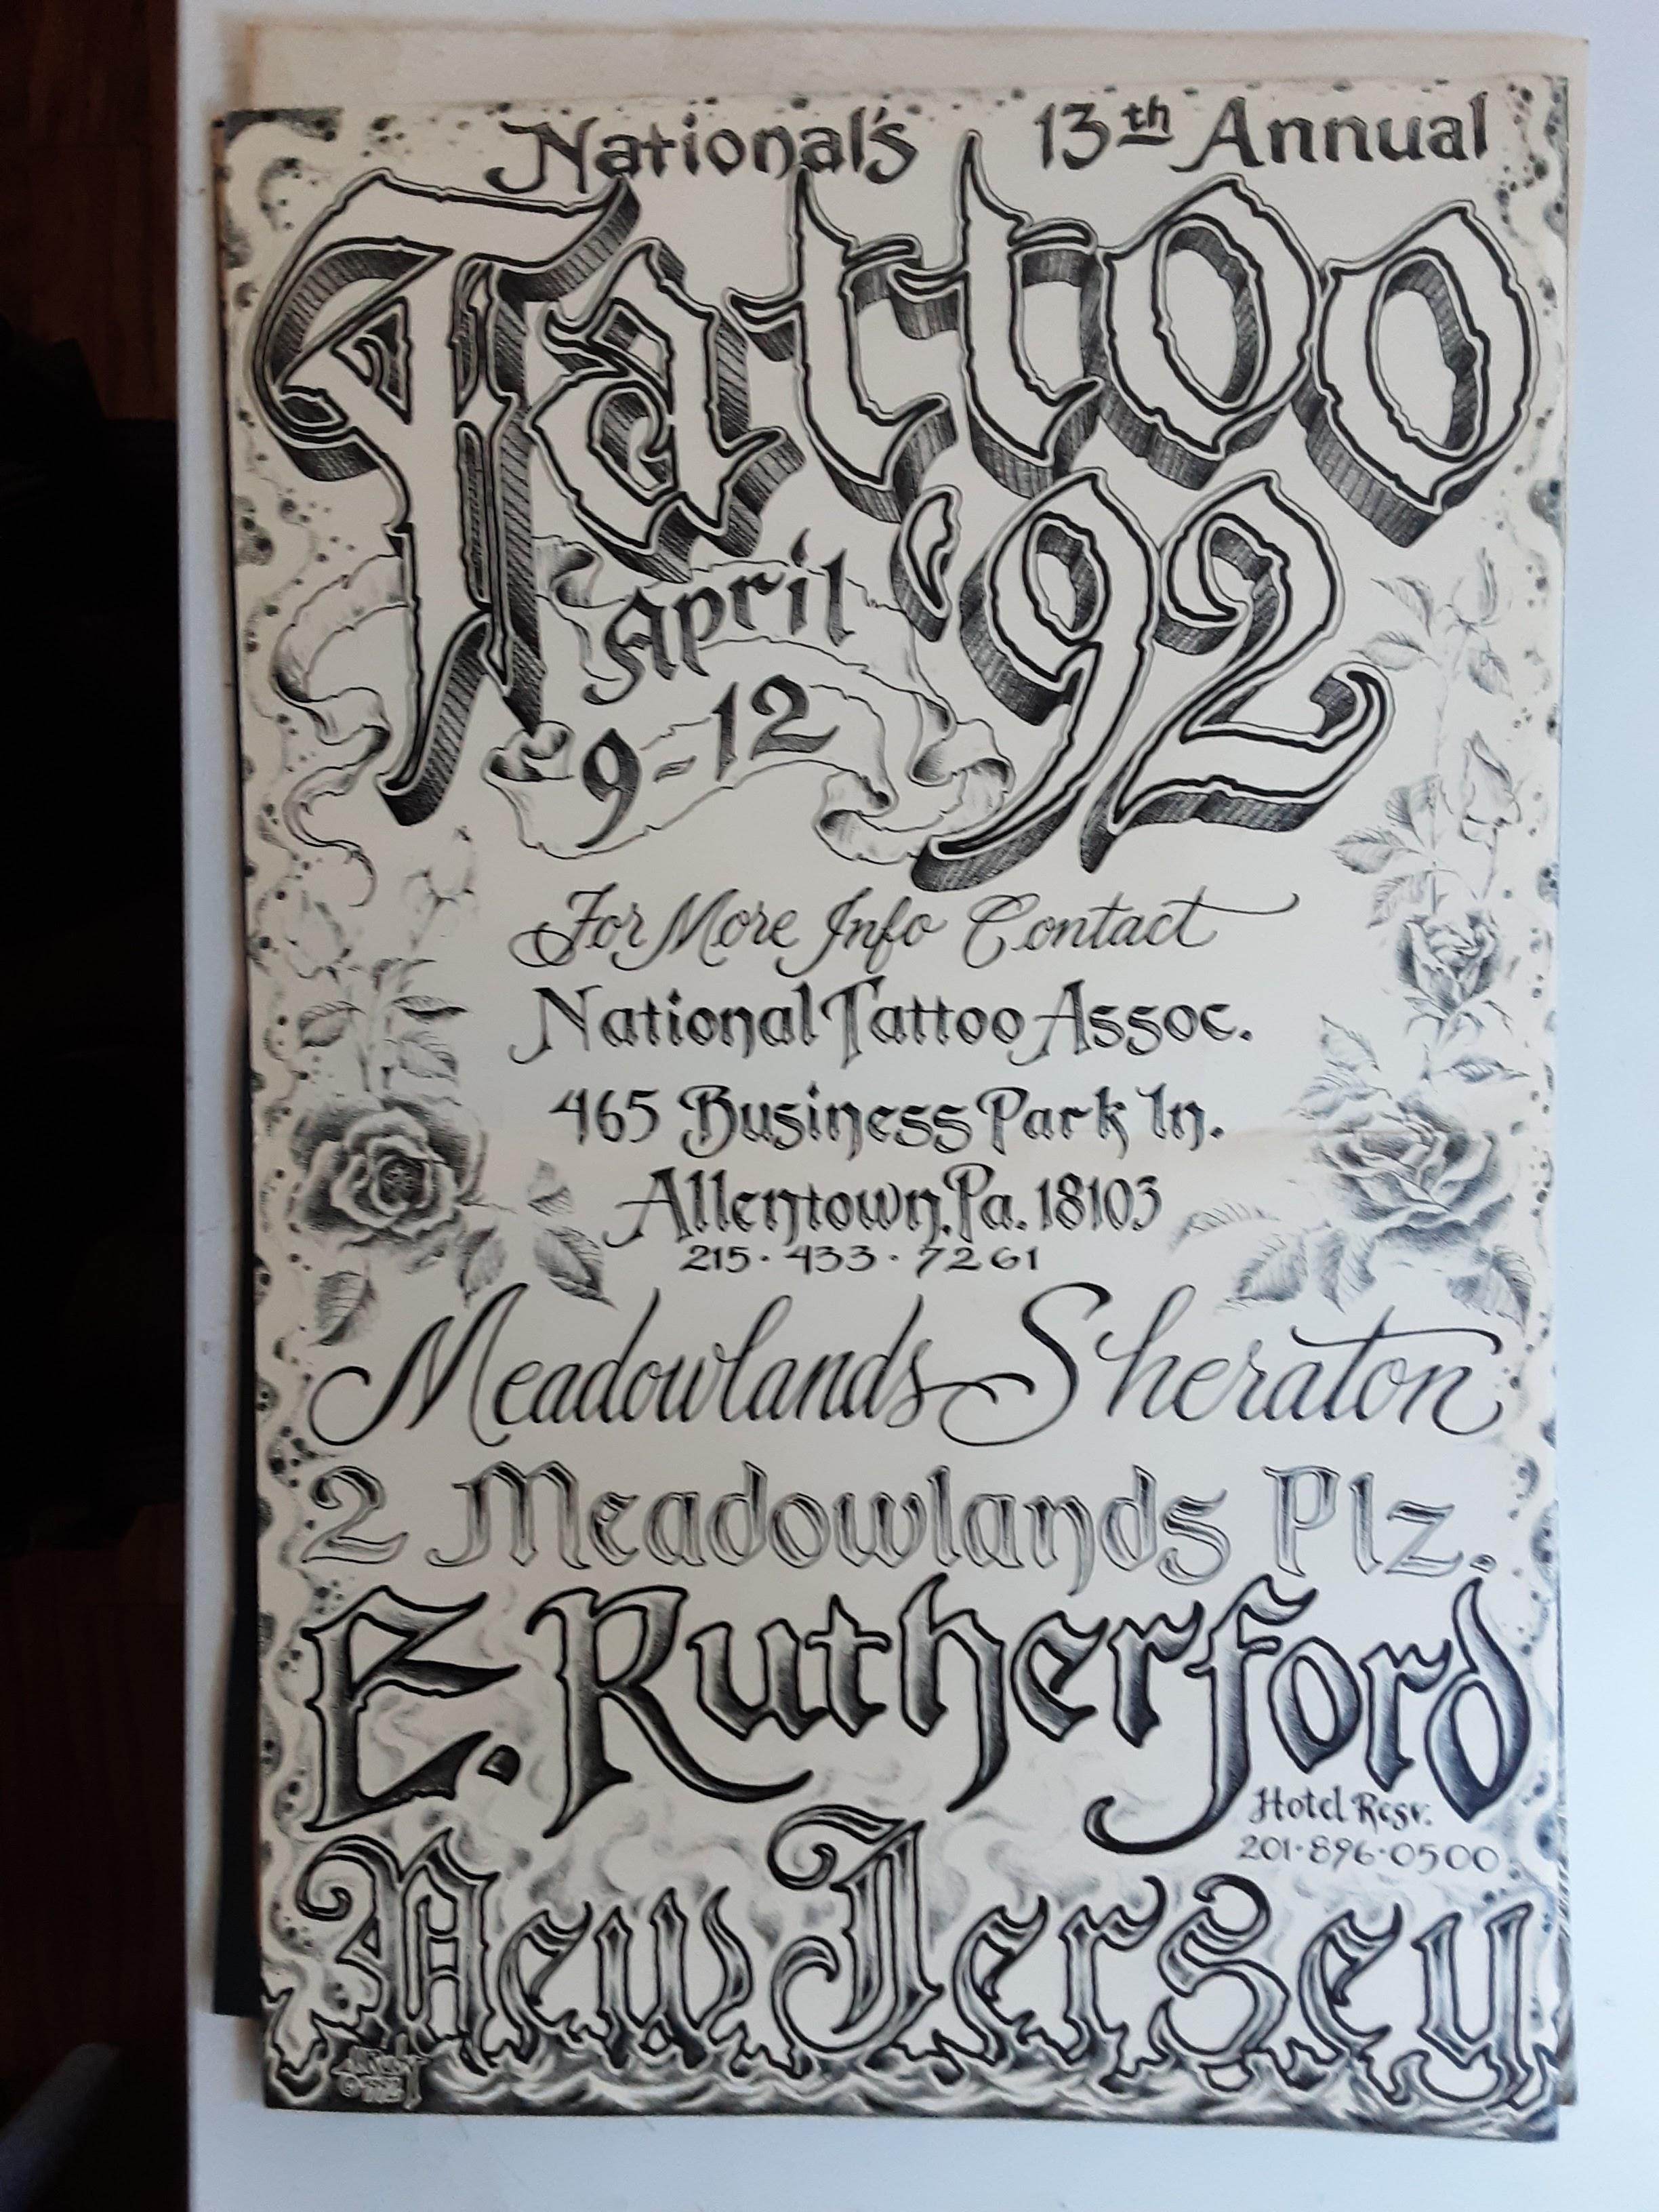 National's 13th Annual
Tattoo
'92
April
9-12
For More Info Contact
National Tattoo Assoc.
465 Business Park Ln.
Allentown, Pa. 18103
215·433·7261
Meadowlands Sheraton
2 Meadowlands Plz.
E. Rutherford
Hotel Resr.
201·896·0500
New Jersey